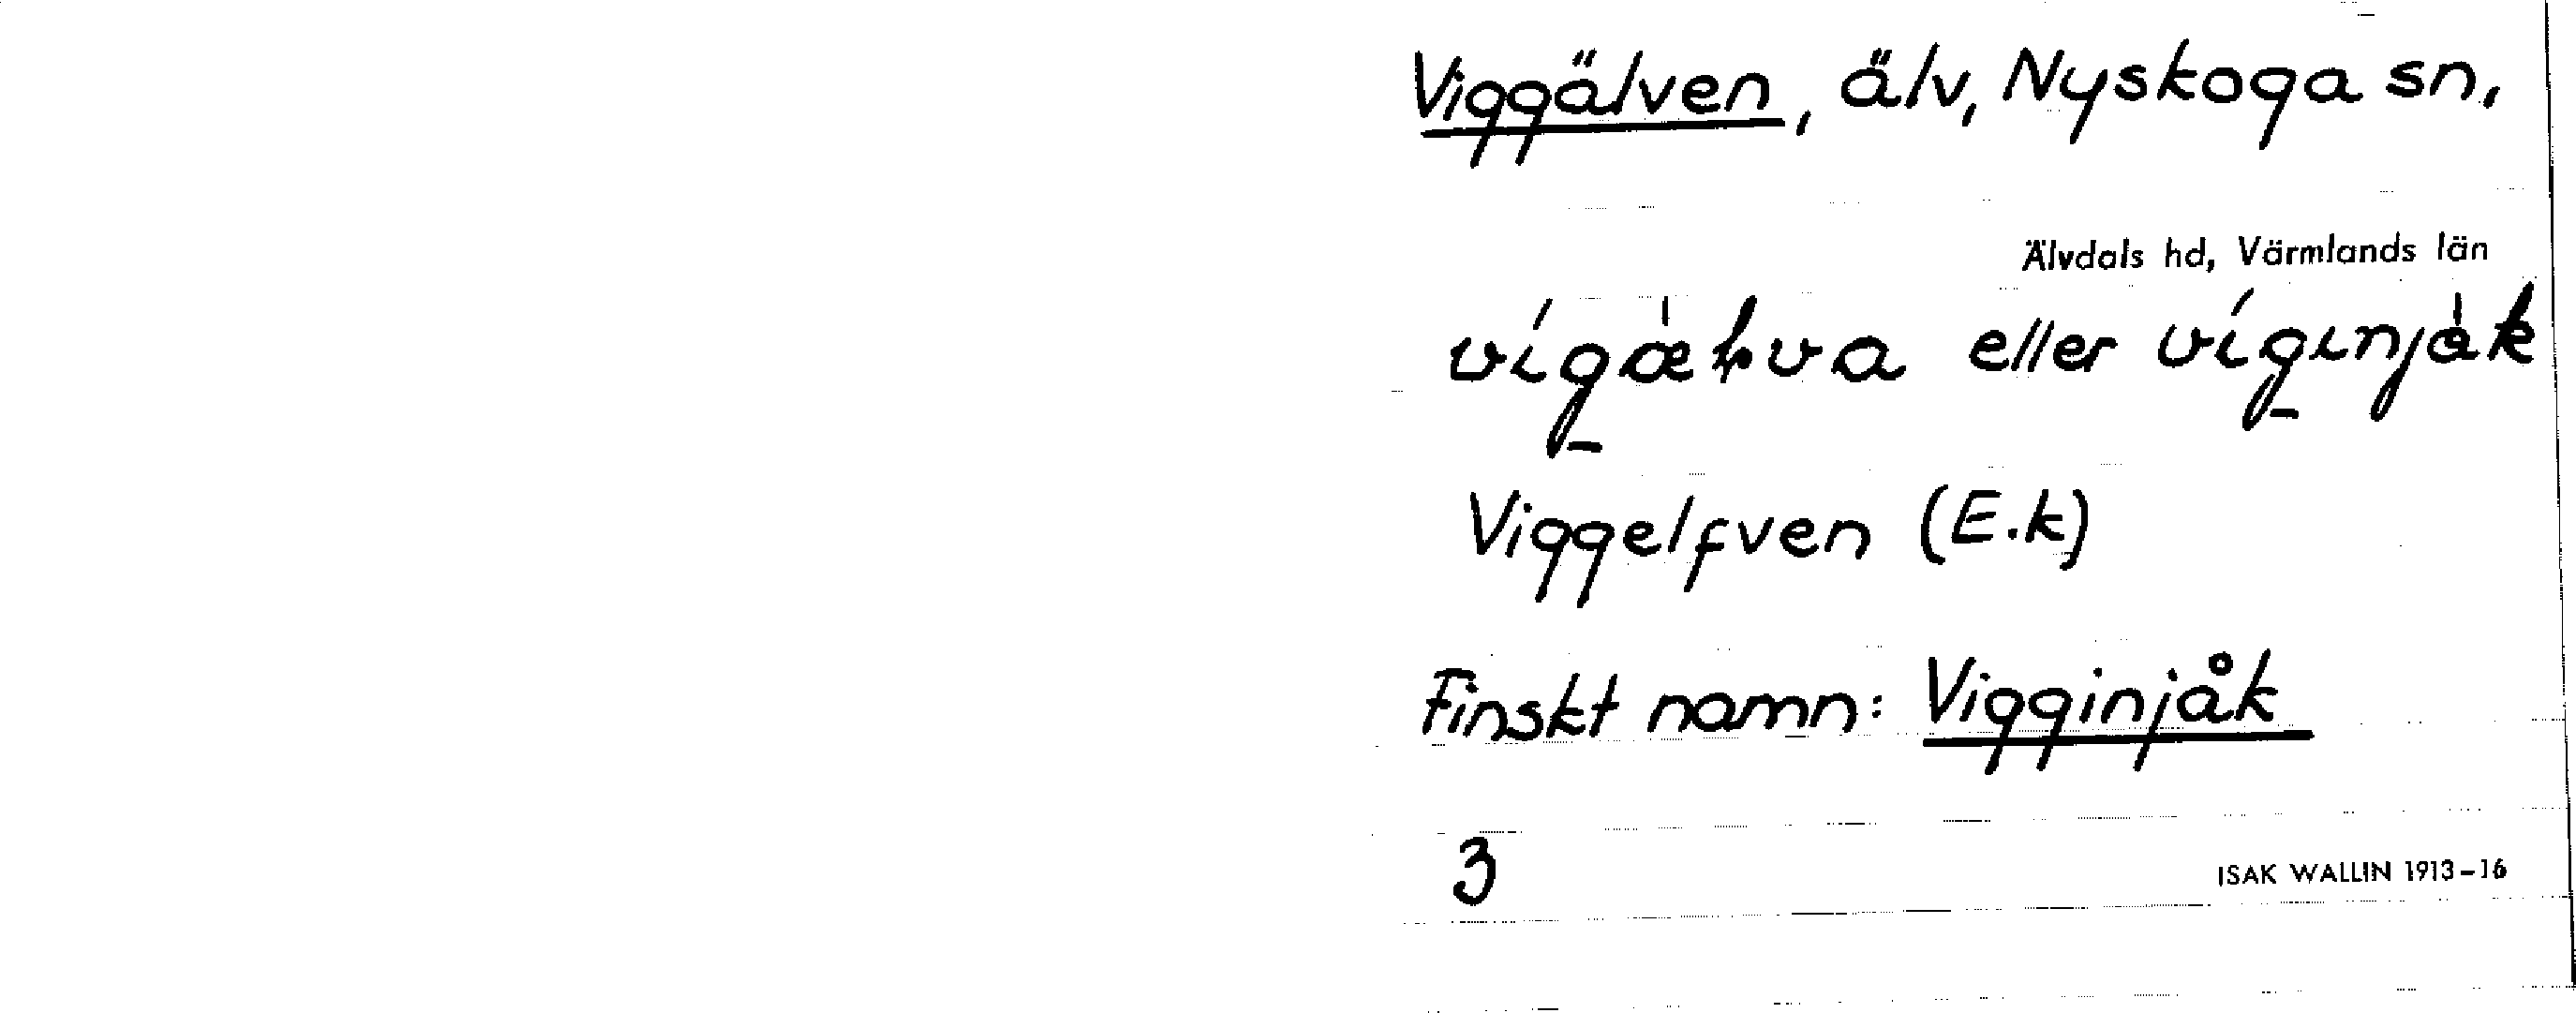 Viggälven, älv, Nyskoga sn,
Älvdals hd, Värmlands län
eller
Viggelfven (E.k)
Finskt namn: Vigginjåk
3
ISAK WALLIN 1913–16